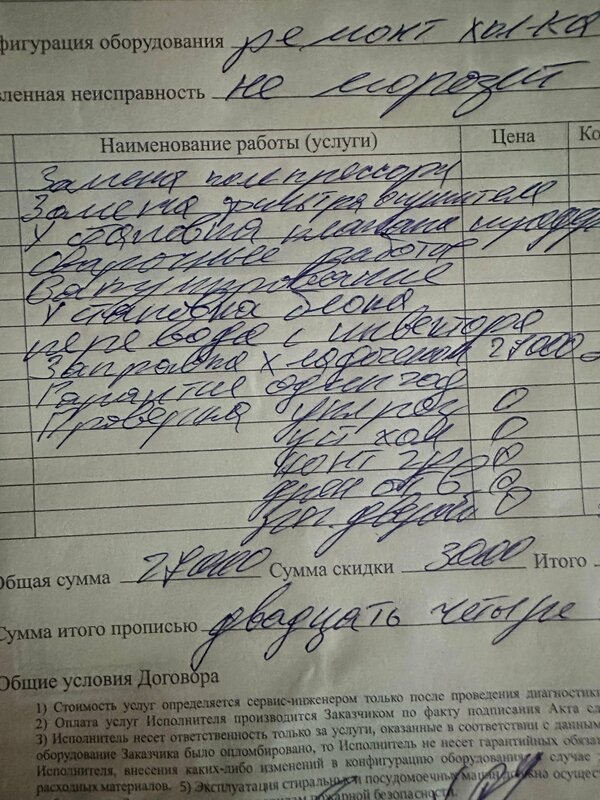 фигурация оборудования ремонт хол-ка
вленная неисправность не морозит
Наименование работы (услуги) Цена Ко
Замена компрессора
Замена фильтра осушителя
Установка клапана шредера
Сварочные работы
Вакуумирование
Установка блока
перевода с инвектора
Заправка Хладогеном 27000
Гарантия один год
Проверка укл раз 0
уст хол 0
0
0
зап. дверей 0
Общая сумма 27000 Сумма скидки 3000 Итого
Сумма итого прописью двадцать четыре
Общие условия Договора
1) Стоимость услуг определяется сервис-инженером только после проведения диагностики
2) Оплата услуг Исполнителя производится Заказчиком по факту подписания Акта сд
3) Исполнитель несет ответственность только за услуги, оказанные в соответствии с данным
оборудование Заказчика было опломбировано, то Исполнитель не несет гарантийных обязат
Исполнителя, внесения каких-либо изменений в конфигурацию оборудования случае
расходных материалов. 5) Эксплуатация стиральных и посудомоечных машин должна осущест
пожарной безопасности.